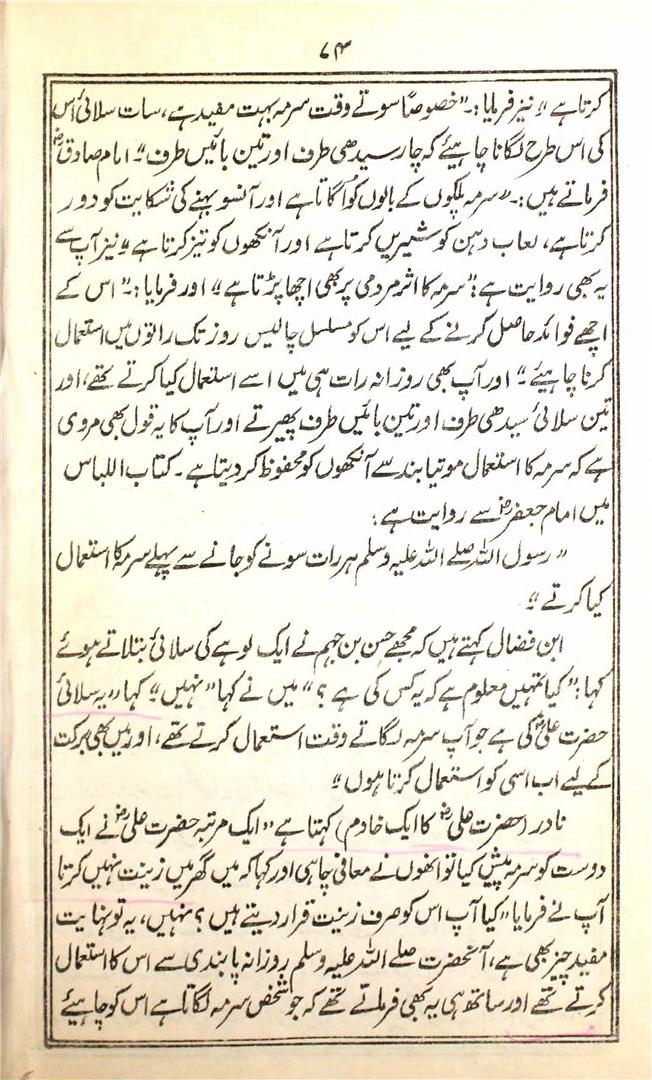 ۷۴
کرتا ہے“ نیز فرمایا:۔ ”خصوصاً سوتے وقت سرمہ بہت مفید ہے، سات سلائی اُس
کی اس طرح لگانا چاہیئے کہ چار سیدھی طرف اور تین بائیں طرف“ امام صادقؓ
فرماتے ہیں:۔ ”سرمہ پلکوں کے بالوں کو اگاتا ہے اور آنسو بہنے کی شکایت کو دور
کرتا ہے، لعاب دہن کو شیریں کرتا ہے اور آنکھوں کو تیز کرتا ہے“ نیز آپ سے
یہ بھی روایت ہے: ”سرمہ کا اثر مردمی پر بھی اچھا پڑتا ہے“ اور فرمایا:۔ ”اس کے
اچھے فوائد حاصل کرنے کے لیے اس کو مسلسل چالیس روز تک راتوں میں استعمال
کرنا چاہیئے۔“ اور آپ بھی روزانہ رات ہی میں اسے استعمال کیا کرتے تھے، اور
تین سلائی سیدھی طرف اور تین بائیں طرف پھیرتے اور آپ کا یہ قول بھی مروی
ہے کہ سرمہ کا استعمال موتیا بند سے آنکھوں کو محفوظ کر دیتا ہے۔ کتاب اللباس
میں امام جعفرؓ سے روایت ہے:
”رسول اللہ صلے اللہ علیہ وسلم ہر رات سونے کو جانے سے پہلے سرمہ کا استعمال
کیا کرتے“
ابن فضال کہتے ہیں کہ مجھے حسن بن جہم نے ایک لوہے کی سلائی بتلاتے ہوئے
کہا: ”کیا تمہیں معلوم ہے کہ یہ کس کی ہے؟“ میں نے کہا ”نہیں“ کہا ”یہ سلائی
حضرت علیؓ کی ہے جو آپ سرمہ لگاتے وقت استعمال کرتے تھے، اور میں بھی برکت
کے لیے اب اسی کو استعمال کرتا ہوں“
نادر (حضرت علیؓ کا ایک خادم) کہتا ہے ”ایک مرتبہ حضرت علیؓ نے ایک
دوست کو سرمہ پیش کیا تو انھوں نے معافی چاہی اور کہا کہ میں گھر میں زینت نہیں کرتا
آپ نے فرمایا ”کیا آپ اس کو صرف زینت قرار دیتے ہیں؟ نہیں، یہ تو نہایت
مفید چیز بھی ہے، آنحضرت صلے اللہ علیہ وسلم روزانہ پابندی سے اس کا استعمال
کرتے تھے اور ساتھ ہی یہ بھی فرماتے تھے کہ جو شخص سرمہ لگاتا ہے اس کو چاہیئے